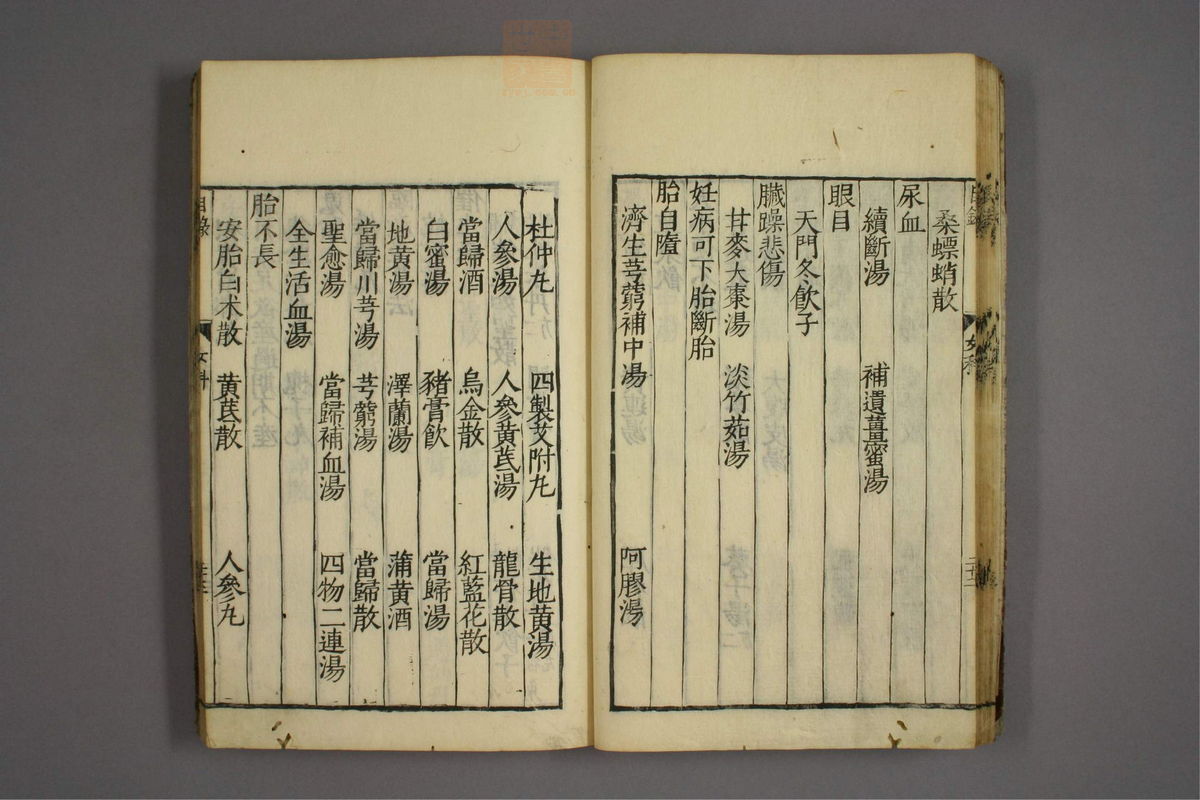 桑螵蛸散
尿血
續斷湯 補遺薑蜜湯
眼目
天門冬飲子
臟躁悲傷
甘麥大棗湯 淡竹茹湯
妊病可下胎斷胎
胎自墮
濟生芎藭補中湯 阿膠湯
杜仲丸 四製艾附丸 生地黃湯
人參湯 人參黃芪湯 龍骨散
當歸酒 烏金散 紅藍花散
白蜜湯 豬膏飲 當歸湯
地黃湯 澤蘭湯 蒲黃酒
當歸川芎湯 芎藭湯 當歸散
聖愈湯 當歸補血湯 四物二連湯
全生活血湯
胎不長
安胎白朮散 黃芪散 人參丸
目錄 女科